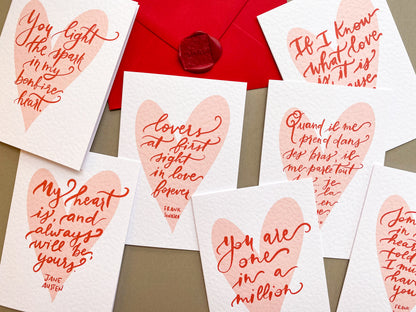 You light
the spark
in my
bonfire
heart.
If I Know
what love
is, it is
lovers
at first
sight
in love
forever
FRANK
SINATRA
Quand il me
prend dans
ses bras, il
me parle tout
My heart
is, and
always
will be
yours.
JANE
AUSTEN
You are
one
in a
million
in
heart
told
I m
have
you